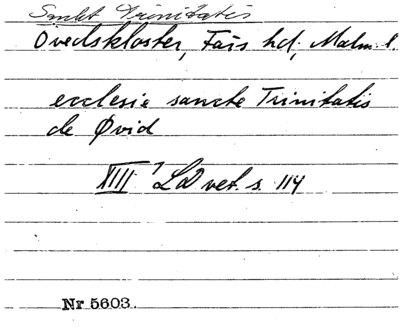 Sankt Trinitatis
Övedskloster, Färs hd, Malm. l.
ecclesie sancte Trinitatis
de Øvid
XIIII 7 LD vet. s. 114
Nr 5603.